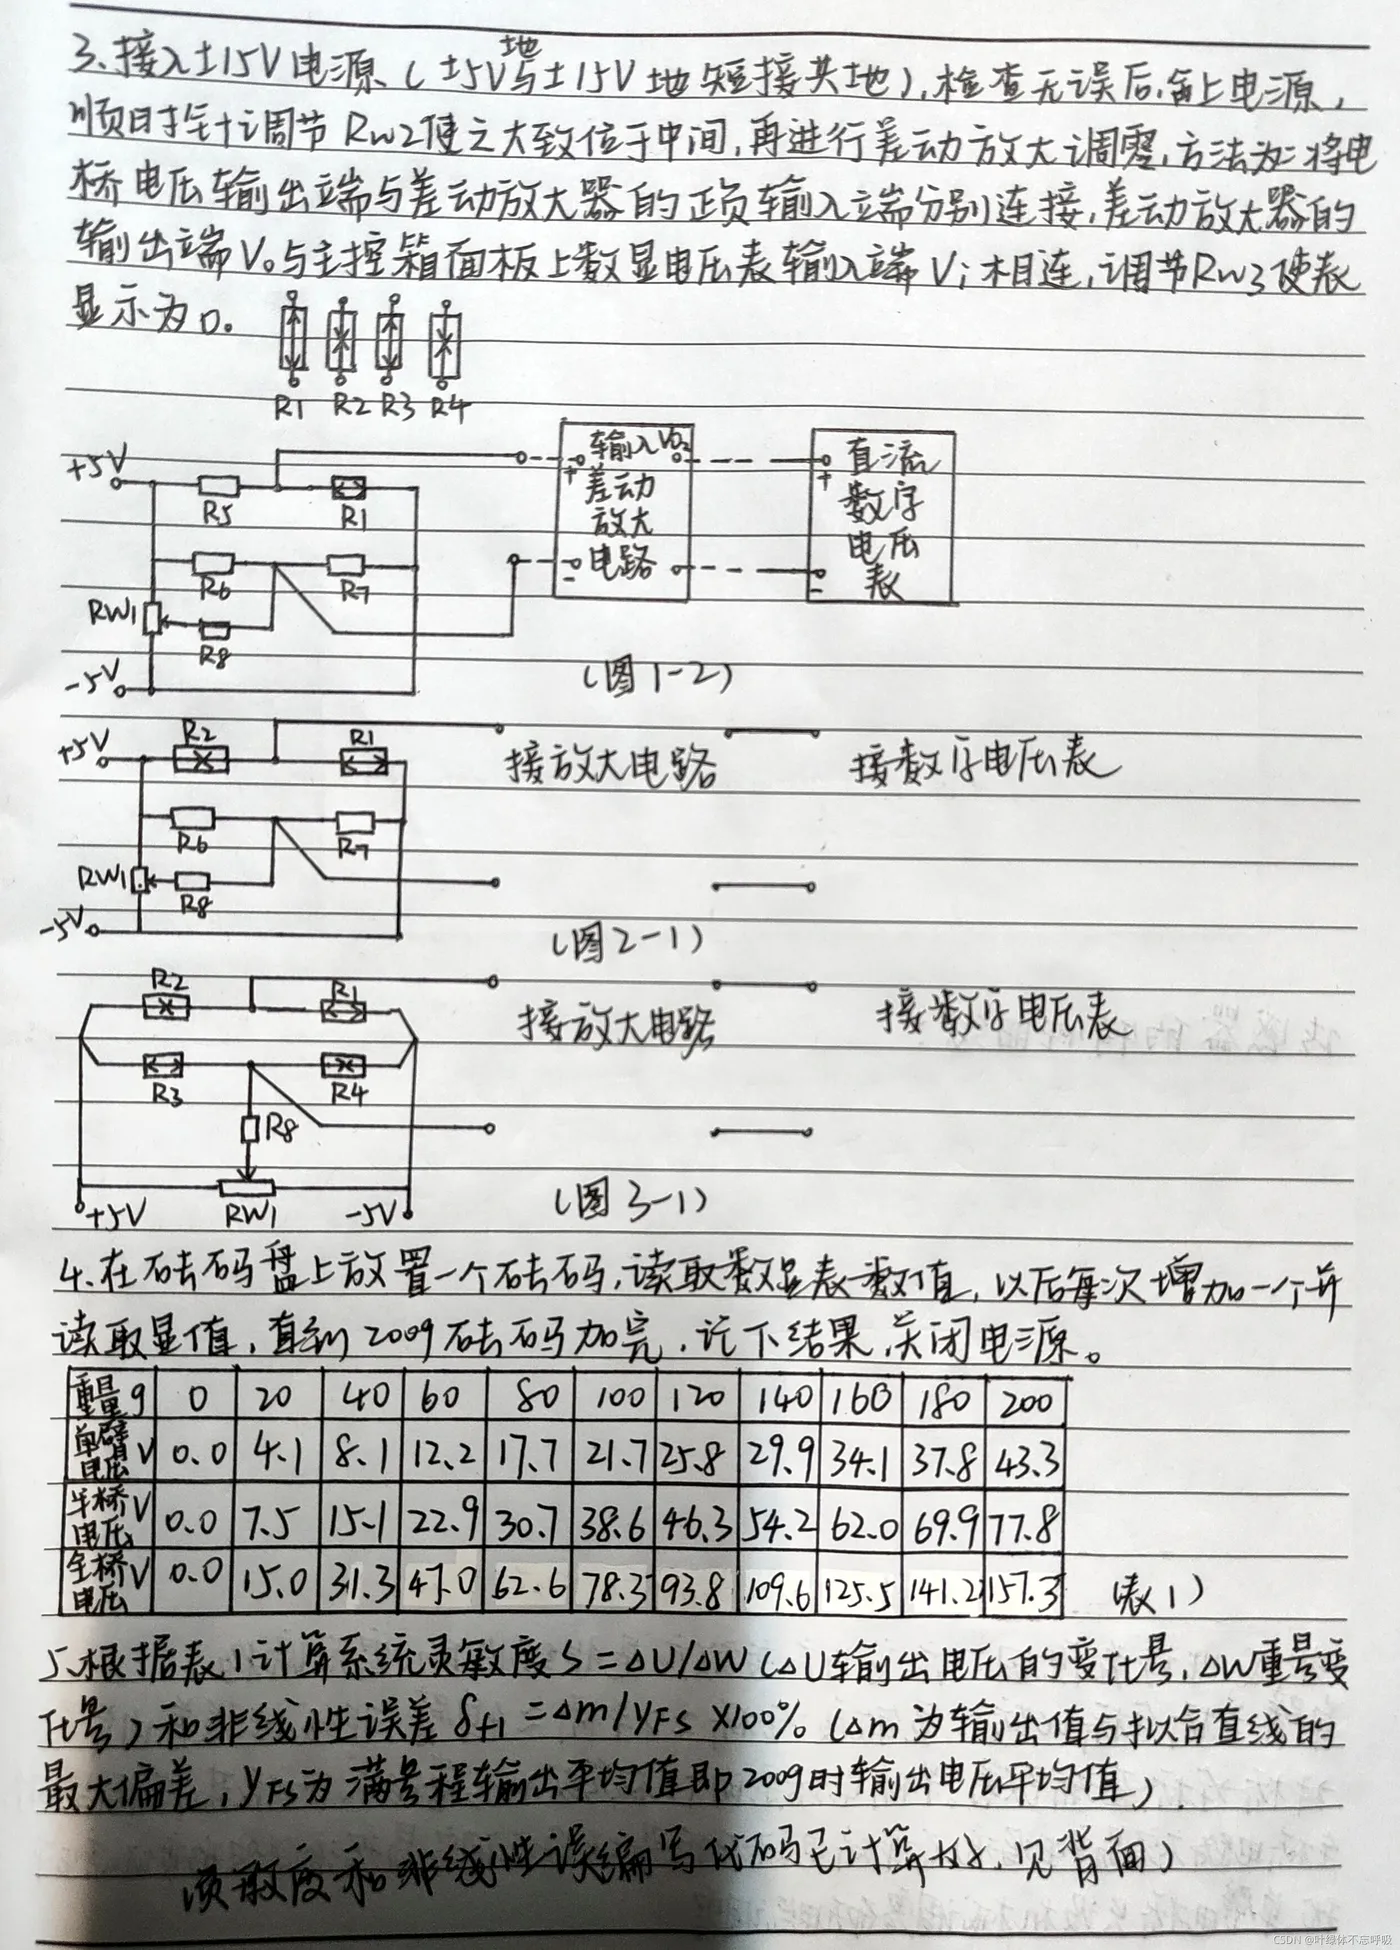 3、接入±15V电源(±5V地与±15V地短接共地),检查无误后,合上电源,
顺时针调节RW2使之大致位于中间,再进行差动放大调零,方法为:将电
桥电压输出端与差动放大器的正负输入端分别连接,差动放大器的
输出端V。与主控箱面板上数显电压表输入端Vi相连,调节RW3使表
显示为0。
R1 R2 R3 R4
+5V R5 R1 输入 V02 直流
+ 差动 + 数字
放大 电压
R6 R7 - 电路 - 表
RW1 R8
-5V (图1-2)
+5V R2 R1 接放大电路 接数字电压表
R6 R7
RW1 R8
-5V (图2-1)
R2 R1 接放大电路 接数字电压表
R3 R4
R8
+5V RW1 -5V (图3-1)
4、在砝码盘上放置一个砝码,读取数显表数值,以后每次增加一个并
读取显值,直到200g砝码加完,记下结果,关闭电源。
重量g 0 20 40 60 80 100 120 140 160 180 200
单臂电压V 0.0 4.1 8.1 12.2 17.7 21.7 25.8 29.9 34.1 37.8 43.3
半桥电压V 0.0 7.5 15.1 22.9 30.7 38.6 46.3 54.2 62.0 69.9 77.8
全桥电压V 0.0 15.0 31.3 47.0 62.6 78.3 93.8 109.6 125.5 141.2 157.3 (表1)
5、根据表1计算系统灵敏度S=ΔU/ΔW(ΔU输出电压的变化量,ΔW重量变
化量)和非线性误差δf1=Δm/yFS×100%(Δm为输出值与拟合直线的
最大偏差,yFS为满量程输出平均值即200g时输出电压平均值)
灵敏度和非线性误编写代码已计算好,见背面)
CSDN @叶绿体不忘呼吸